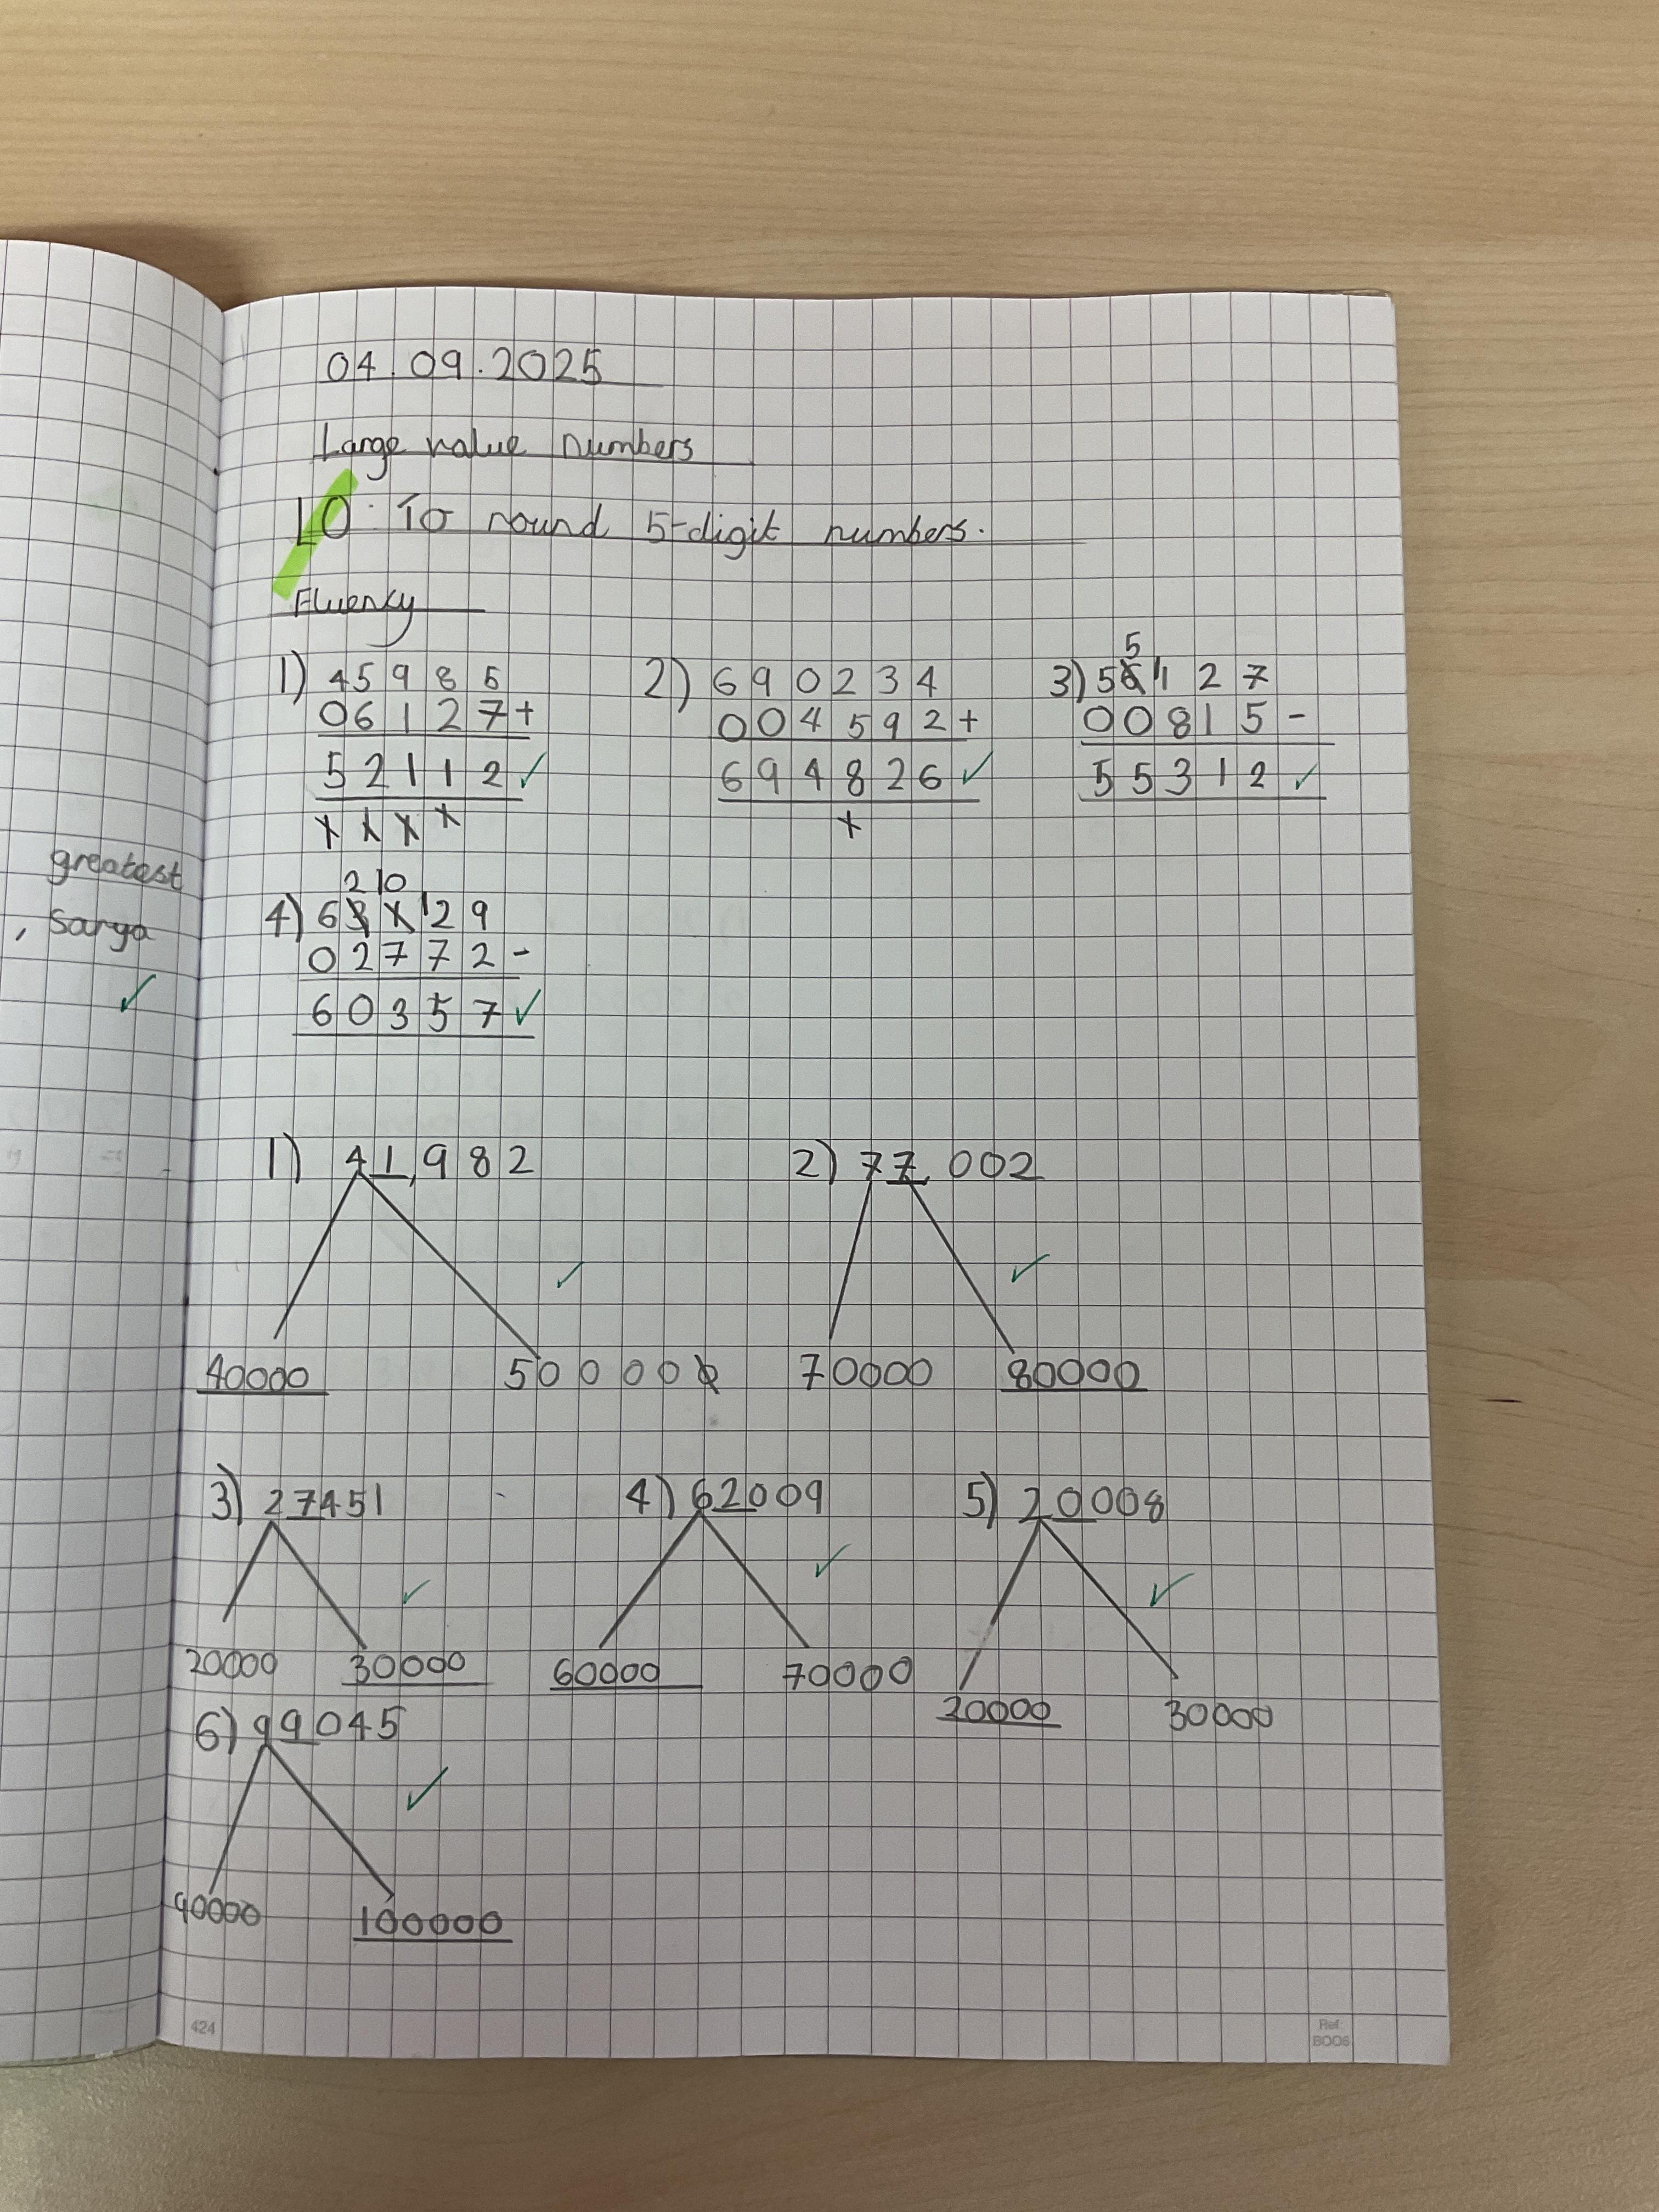 04.09.2025
Large value numbers
LO: To round 5-digit numbers.
Fluency
5
1) 45985 2) 690234 3) 561127
06127+ 004592+ 00815-
52112✓ 694826✓ 55312✓
1111 1
greatest
, Sarga
✓
2 10
4) 631129
02772-
60357✓
1) 41,982 2) 77,002
✓ ✓
40000 500000 70000 80000
3) 27451 4) 62009 5) 20008
✓ ✓ ✓
20000 30000 60000 70000
20000 30000
6) 99045
✓
90000 100000
424
Ref:
BOO6